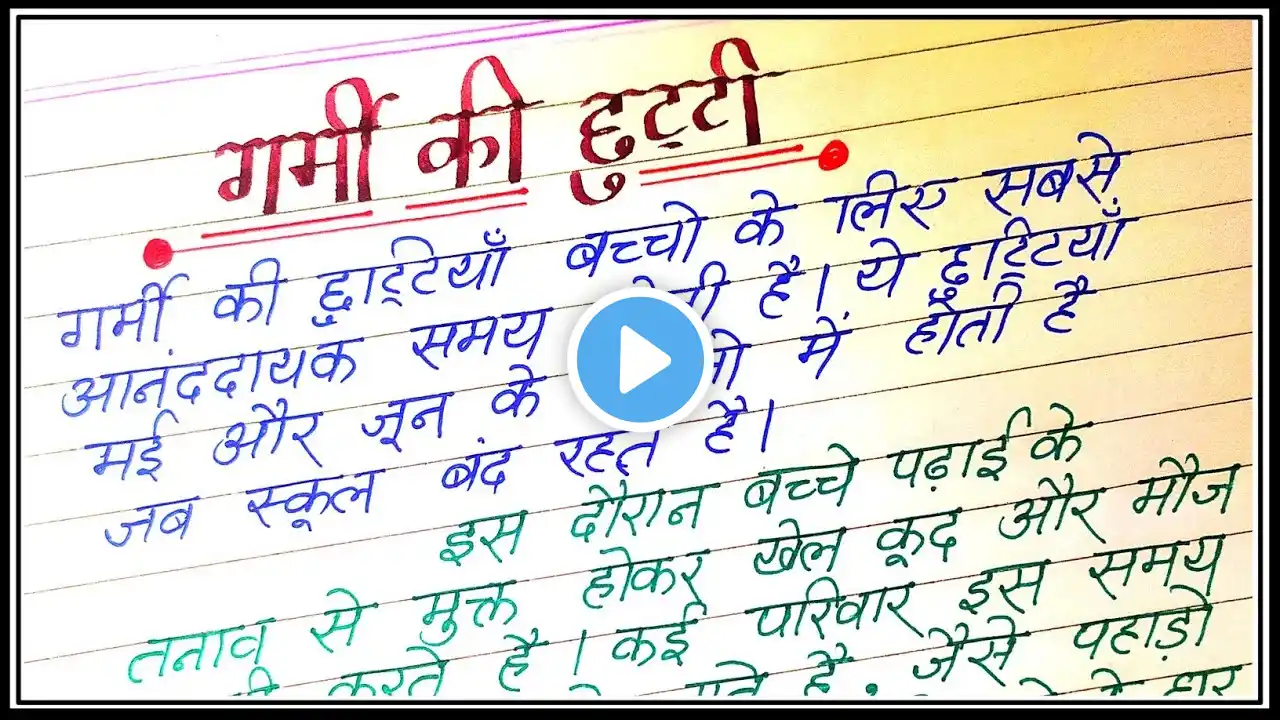 गर्मी की छुट्टी
गर्मी की छुट्टियाँ बच्चो के लिए सबसे
आनंददायक समय है। ये छुट्टियाँ
मई और जून के में होती है
जब स्कूल बंद रहते है।
इस दौरान बच्चे पढ़ाई के
तनाव से मुक्त होकर खेल कूद और मौज
करते है। कई परिवार इस समय
है, जैसे पहाड़ो